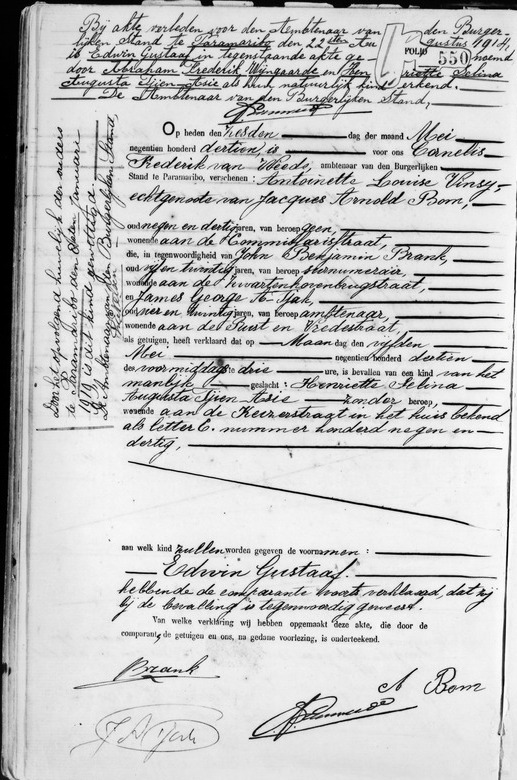 Bij akte verleden voor den Ambtenaar van den Burger-
lijken Stand te Paramaribo den 22sten Au gustus 1914,
is Edwin Gustaaf in tegenstaande akte ge noemd
door Abraham Frederik Wijngaarde en Hen riette Selina
Augusta Tjien-Asie als hun natuurlijk kind erkend.
De Ambtenaar van den Burgerlijken Stand,
FOLIO
550
Door het opvolgend huwelijk der ouders
te Paramaribo den
1919, is dit kind gewettigd.
De Ambtenaar van den Burgerlijken Stand,
Op heden den zesden dag der maand Mei
negentien honderd dertien, is voor ons Cornelis
Frederik van Weede, ambtenaar van den Burgerlijken
Stand te Paramaribo, verschenen: Antoinette Louise Vinsy
echtgenoote van Jacques Arnold Bom,
oud negen en dertig jaren, van beroep geen,
wonende aan de Kommissarisstraat,
die, in tegenwoordigheid van John Benjamin Brank,
oud vijf en twintig jaren, van beroep surnumerair,
wonende aan de Zwartenhovenbrugstraat,
en James George A-Tjak,
oud vier en twintig jaren, van beroep ambtenaar,
wonende aan de Rust en Vredestraat,
als getuigen, heeft verklaard dat op Maandag den vijfden
Mei negentien honderd dertien
des voormiddags te drie ure, is bevallen van een kind van het
manlijk geslacht: Henriette Selina
Augusta Tjien-Asie zonder beroep,
wonende aan de Keizerstraat in het huis bekend
als letter C. nummer honderd negen en
dertig,
aan welk kind zullen worden gegeven de voornamen:
Edwin Gustaaf.
hebbende de comparante voorts verklaard, dat zij
bij de bevalling is tegenwoordig geweest.
Van welke verklaring wij hebben opgemaakt deze akte, die door de
comparant, de getuigen en ons, na gedane voorlezing, is onderteekend.
Brank
A Bom